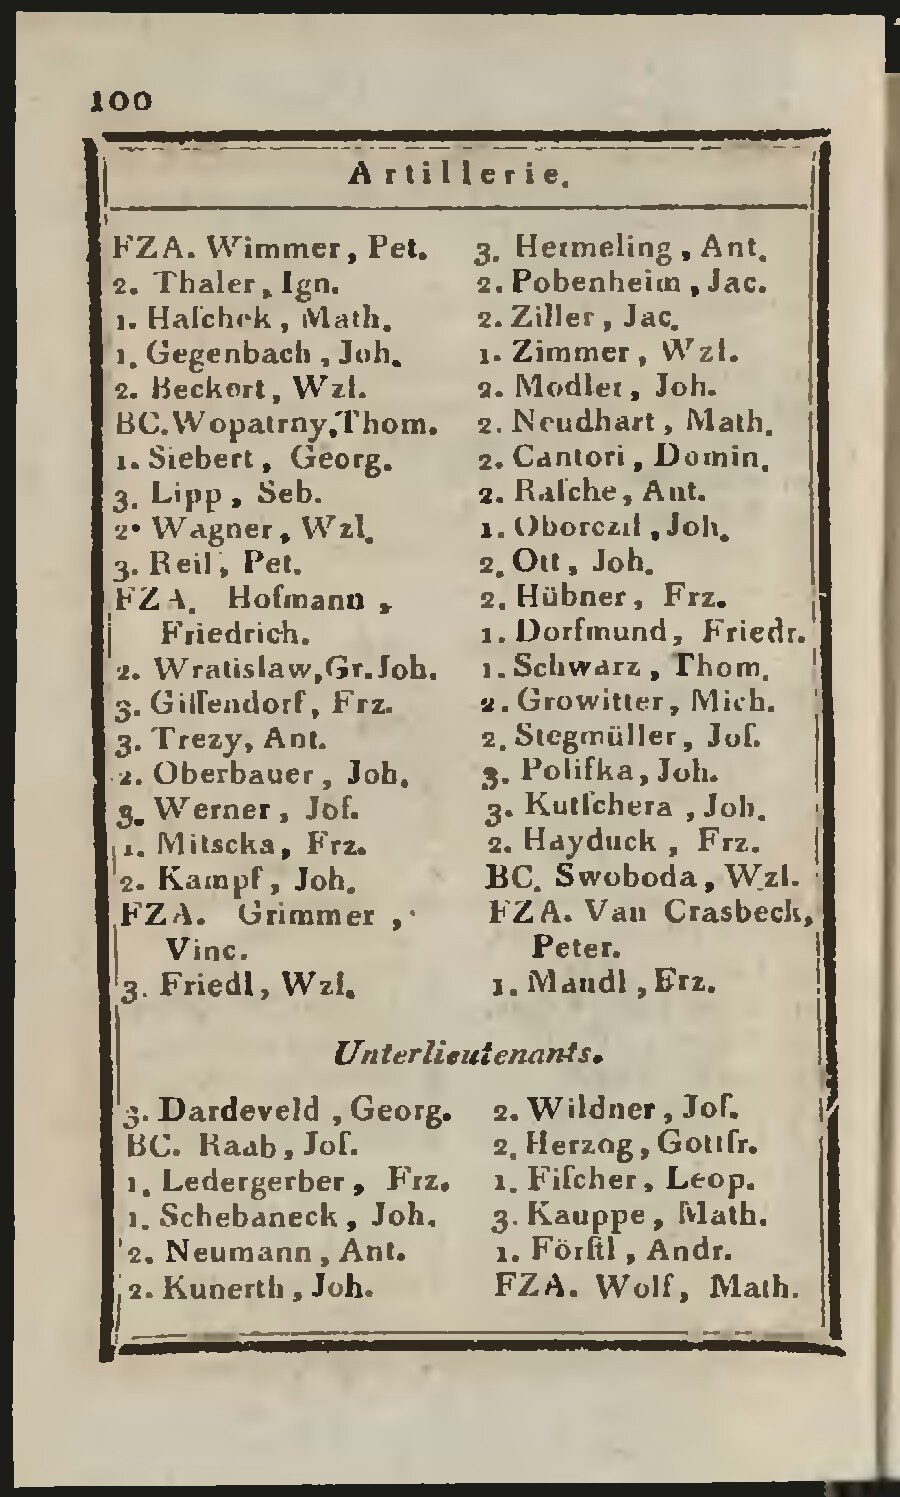 100
Artillerie.
FZA. Wimmer, Pet.
2. Thaler, Ign.
1. Haſchek, Math.
1. Gegenbach, Joh.
2. Beckert, Wzl.
BC. Wopatrny, Thom.
1. Siebert, Georg.
3. Lipp, Seb.
2. Wagner, Wzl.
3. Reil, Pet.
FZA. Hofmann,
Friedrich.
2. Wratislaw, Gr. Joh.
3. Gilſendorf, Frz.
3. Trezy, Ant.
2. Oberbauer, Joh.
3. Werner, Joſ.
1. Mitscka, Frz.
2. Kampf, Joh.
FZA. Grimmer,
Vinc.
3. Friedl, Wzl.
3. Hermeling, Ant.
2. Pobenheim, Jac.
2. Ziller, Jac.
1. Zimmer, Wzl.
2. Modler, Joh.
2. Neudhart, Math.
2. Cantori, Domin.
2. Raſche, Ant.
1. Oborczil, Joh.
2. Ott, Joh.
2. Hübner, Frz.
1. Dorfmund, Friedr.
1. Schwarz, Thom.
2. Growitter, Mich.
2. Stegmüller, Joſ.
3. Poliſka, Joh.
3. Kutſchera, Joh.
2. Hayduck, Frz.
BC. Swoboda, Wzl.
FZA. Van Crasbeck,
Peter.
1. Mandl, Frz.
Unterlieutenants.
3. Dardeveld, Georg.
BC. Raab, Joſ.
1. Ledergerber, Frz.
1. Schebaneck, Joh.
2. Neumann, Ant.
2. Kunerth, Joh.
2. Wildner, Joſ.
2. Herzog, Gottfr.
1. Fiſcher, Leop.
3. Kauppe, Math.
1. Förſtl, Andr.
FZA. Wolf, Math.